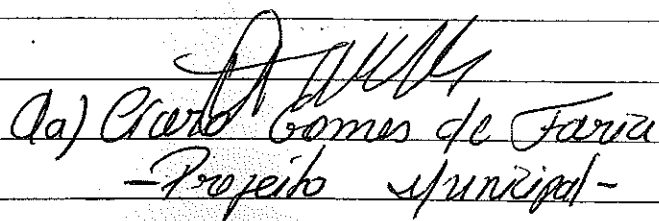 (a) Cicero Gomes de Faria
- Prefeito Municipal -